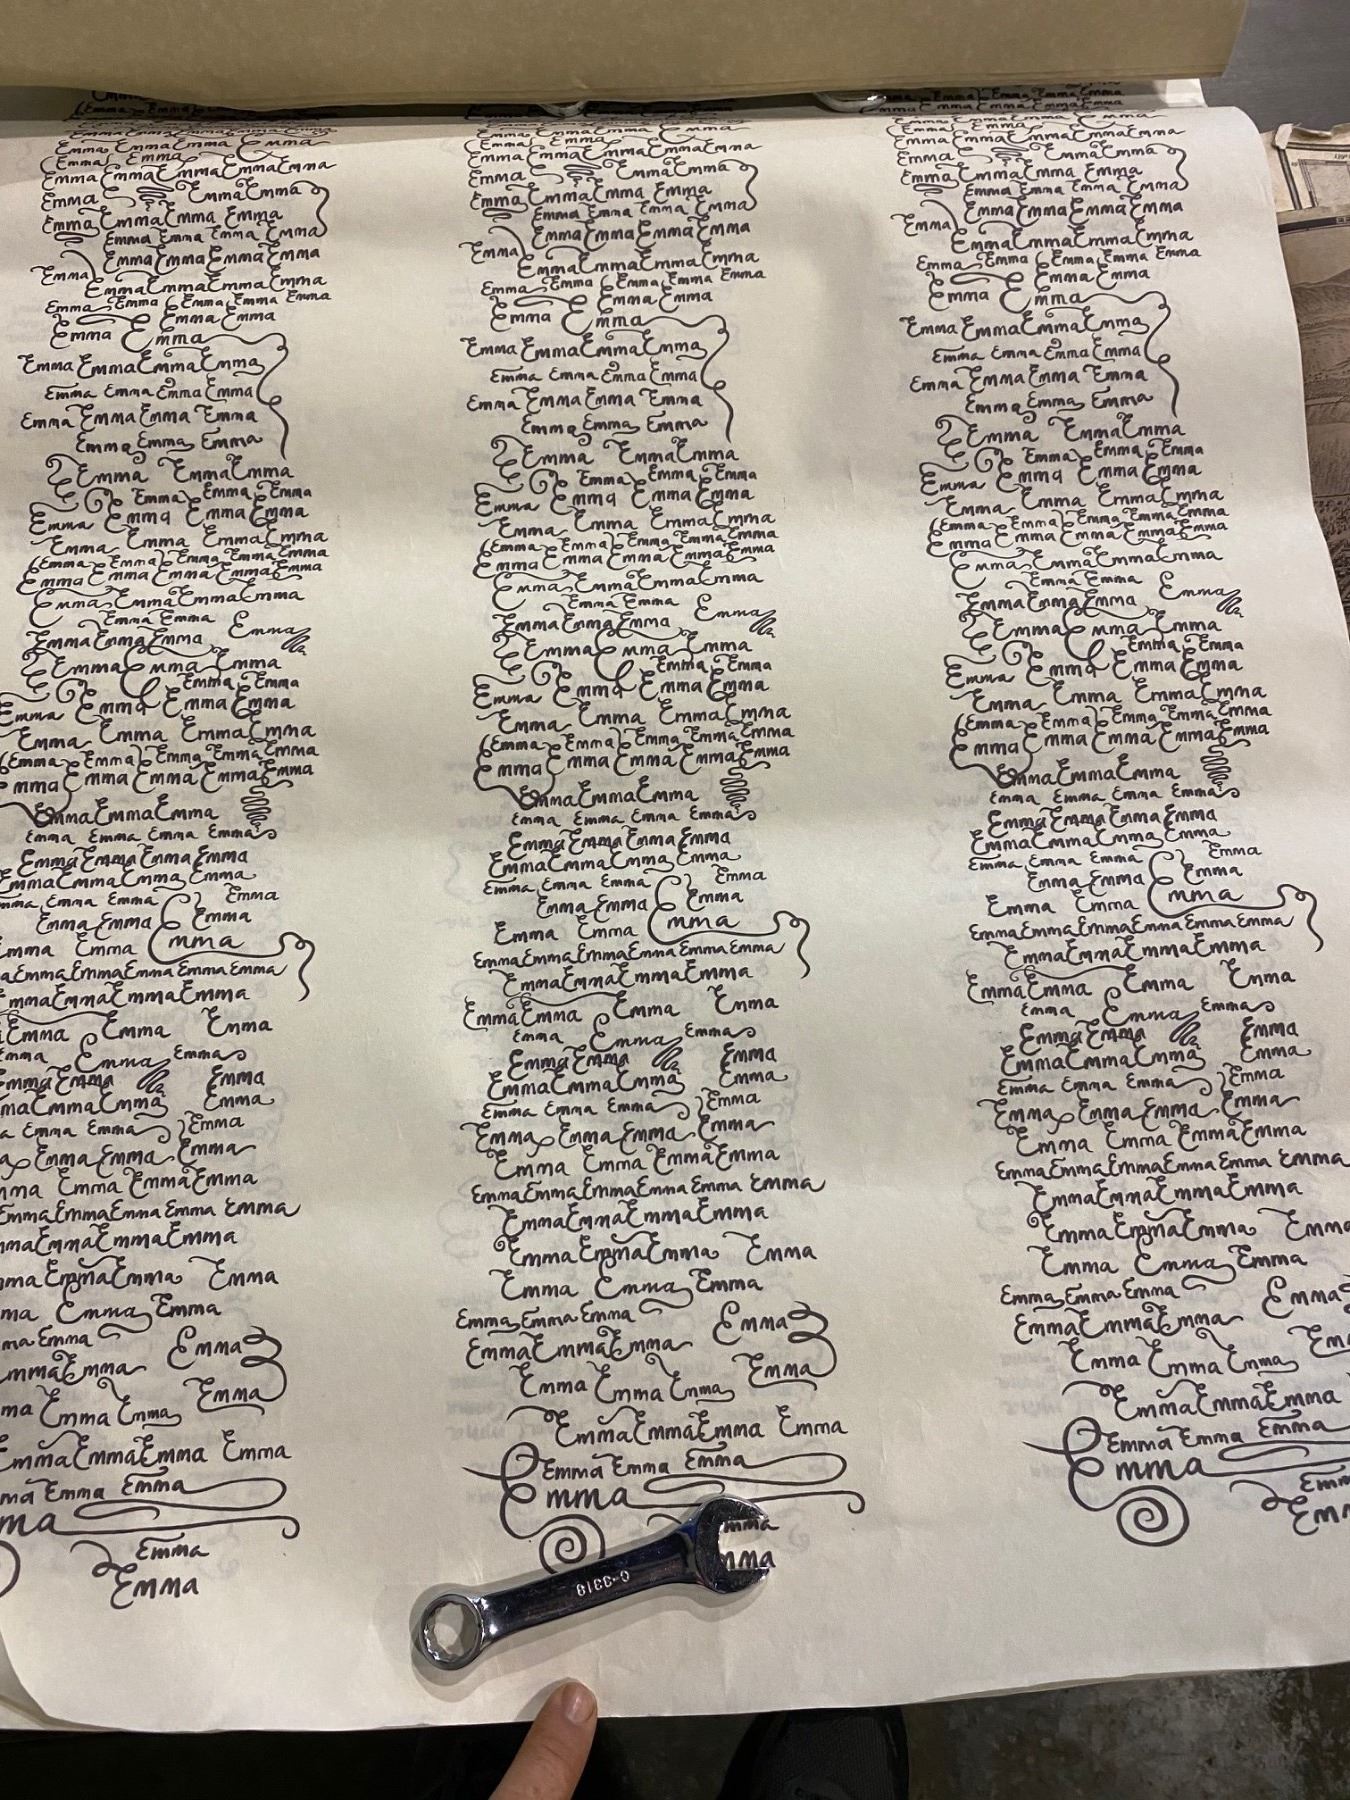 Emma Emma Emma Emma Emma
Emma Emma Emma Emma
Emma Emma
Emma Emma Emma Emma Emma
Emma Emma Emma
Emma Emma Emma Emma
Emma Emma Emma Emma
Emma Emma Emma Emma
Emma Emma Emma Emma Emma
Emma Emma Emma Emma Emma
Emma Emma
Emma Emma
Emma Emma Emma Emma
Emma Emma Emma Emma
Emma Emma Emma Emma
Emma Emma Emma
Emma Emma Emma
Emma Emma Emma
Emma Emma Emma Emma
Emma Emma Emma Emma
Emma Emma Emma Emma Emma
Emma Emma Emma Emma Emma
Emma Emma Emma Emma
Emma Emma
Emma Emma Emma Emma
Emma Emma Emma
Emma Emma
Emma Emma Emma Emma
Emma Emma Emma Emma
Emma Emma Emma Emma Emma
Emma Emma Emma Emma Emma
Emma Emma Emma
Emma Emma Emma Emma
Emma Emma Emma Emma
Emma Emma Emma Emma
Emma Emma Emma
Emma Emma Emma
Emma Emma Emma
Emma Emma Emma Emma Emma
Emma Emma Emma Emma
Emma Emma Emma
Emma Emma Emma
Emma Emma Emma
Emma Emma Emma Emma
Emma Emma Emma
Emma Emma Emma
Emma Emma Emma
Emma Emma Emma Emma Emma
Emma Emma Emma
Emma Emma Emma
Emma Emma
Emma
Emma
Emma Emma
Emma Emma Emma
Emma Emma Emma
Emma Emma
Emma
Emma
Emma Emma Emma Emma Emma
Emma Emma Emma Emma Emma
Emma Emma Emma
Emma Emma Emma Emma
Emma Emma Emma Emma
Emma Emma Emma Emma
Emma Emma Emma Emma Emma
Emma Emma Emma Emma Emma
Emma Emma
Emma Emma
Emma Emma Emma Emma
Emma Emma Emma Emma
Emma Emma Emma Emma
Emma Emma Emma
Emma Emma Emma
Emma Emma Emma
Emma Emma Emma Emma
Emma Emma Emma Emma
Emma Emma Emma Emma Emma
Emma Emma Emma Emma Emma
Emma Emma Emma Emma
Emma Emma
Emma Emma Emma Emma
Emma Emma Emma
Emma Emma
Emma Emma Emma Emma
Emma Emma Emma Emma
Emma Emma Emma Emma Emma
Emma Emma Emma Emma Emma
Emma Emma Emma
Emma Emma Emma Emma
Emma Emma Emma Emma
Emma Emma Emma Emma
Emma Emma Emma Emma
Emma Emma Emma
Emma Emma Emma
Emma Emma Emma Emma Emma Emma
Emma Emma Emma Emma
Emma Emma Emma Emma
Emma Emma Emma
Emma Emma Emma
Emma Emma Emma Emma
Emma Emma Emma Emma
Emma Emma Emma Emma
Emma Emma Emma Emma
Emma Emma Emma Emma Emma Emma
Emma Emma Emma Emma
Emma Emma Emma Emma
Emma Emma Emma
Emma Emma Emma Emma
Emma Emma Emma
Emma Emma Emma Emma
Emma Emma Emma Emma
Emma Emma Emma
Emma
Emma Emma Emma Emma Emma
Emma Emma Emma Emma Emma
Emma Emma Emma
Emma Emma Emma Emma
Emma Emma Emma Emma
Emma Emma Emma Emma
Emma Emma Emma Emma Emma
Emma Emma Emma Emma Emma
Emma Emma
Emma Emma
Emma Emma Emma Emma
Emma Emma Emma Emma
Emma Emma Emma Emma
Emma Emma Emma
Emma Emma Emma
Emma Emma Emma
Emma Emma Emma Emma
Emma Emma Emma Emma
Emma Emma Emma Emma Emma
Emma Emma Emma Emma Emma
Emma Emma Emma Emma
Emma Emma
Emma Emma Emma Emma
Emma Emma Emma
Emma Emma
Emma Emma Emma Emma
Emma Emma Emma Emma
Emma Emma Emma Emma Emma
Emma Emma Emma Emma Emma
Emma Emma Emma
Emma Emma Emma Emma
Emma Emma Emma Emma
Emma Emma Emma Emma
Emma Emma Emma Emma
Emma Emma Emma
Emma Emma Emma
Emma Emma Emma Emma Emma Emma
Emma Emma Emma Emma
Emma Emma Emma Emma
Emma Emma Emma
Emma Emma Emma
Emma Emma Emma Emma
Emma Emma Emma Emma
Emma Emma Emma Emma
Emma Emma Emma Emma
Emma Emma Emma Emma Emma Emma
Emma Emma Emma Emma
Emma Emma Emma Emma
Emma Emma Emma
Emma Emma Emma Emma
Emma Emma Emma
Emma Emma Emma
Emma Emma Emma
Emma Emma Emma
Emma
C-3318